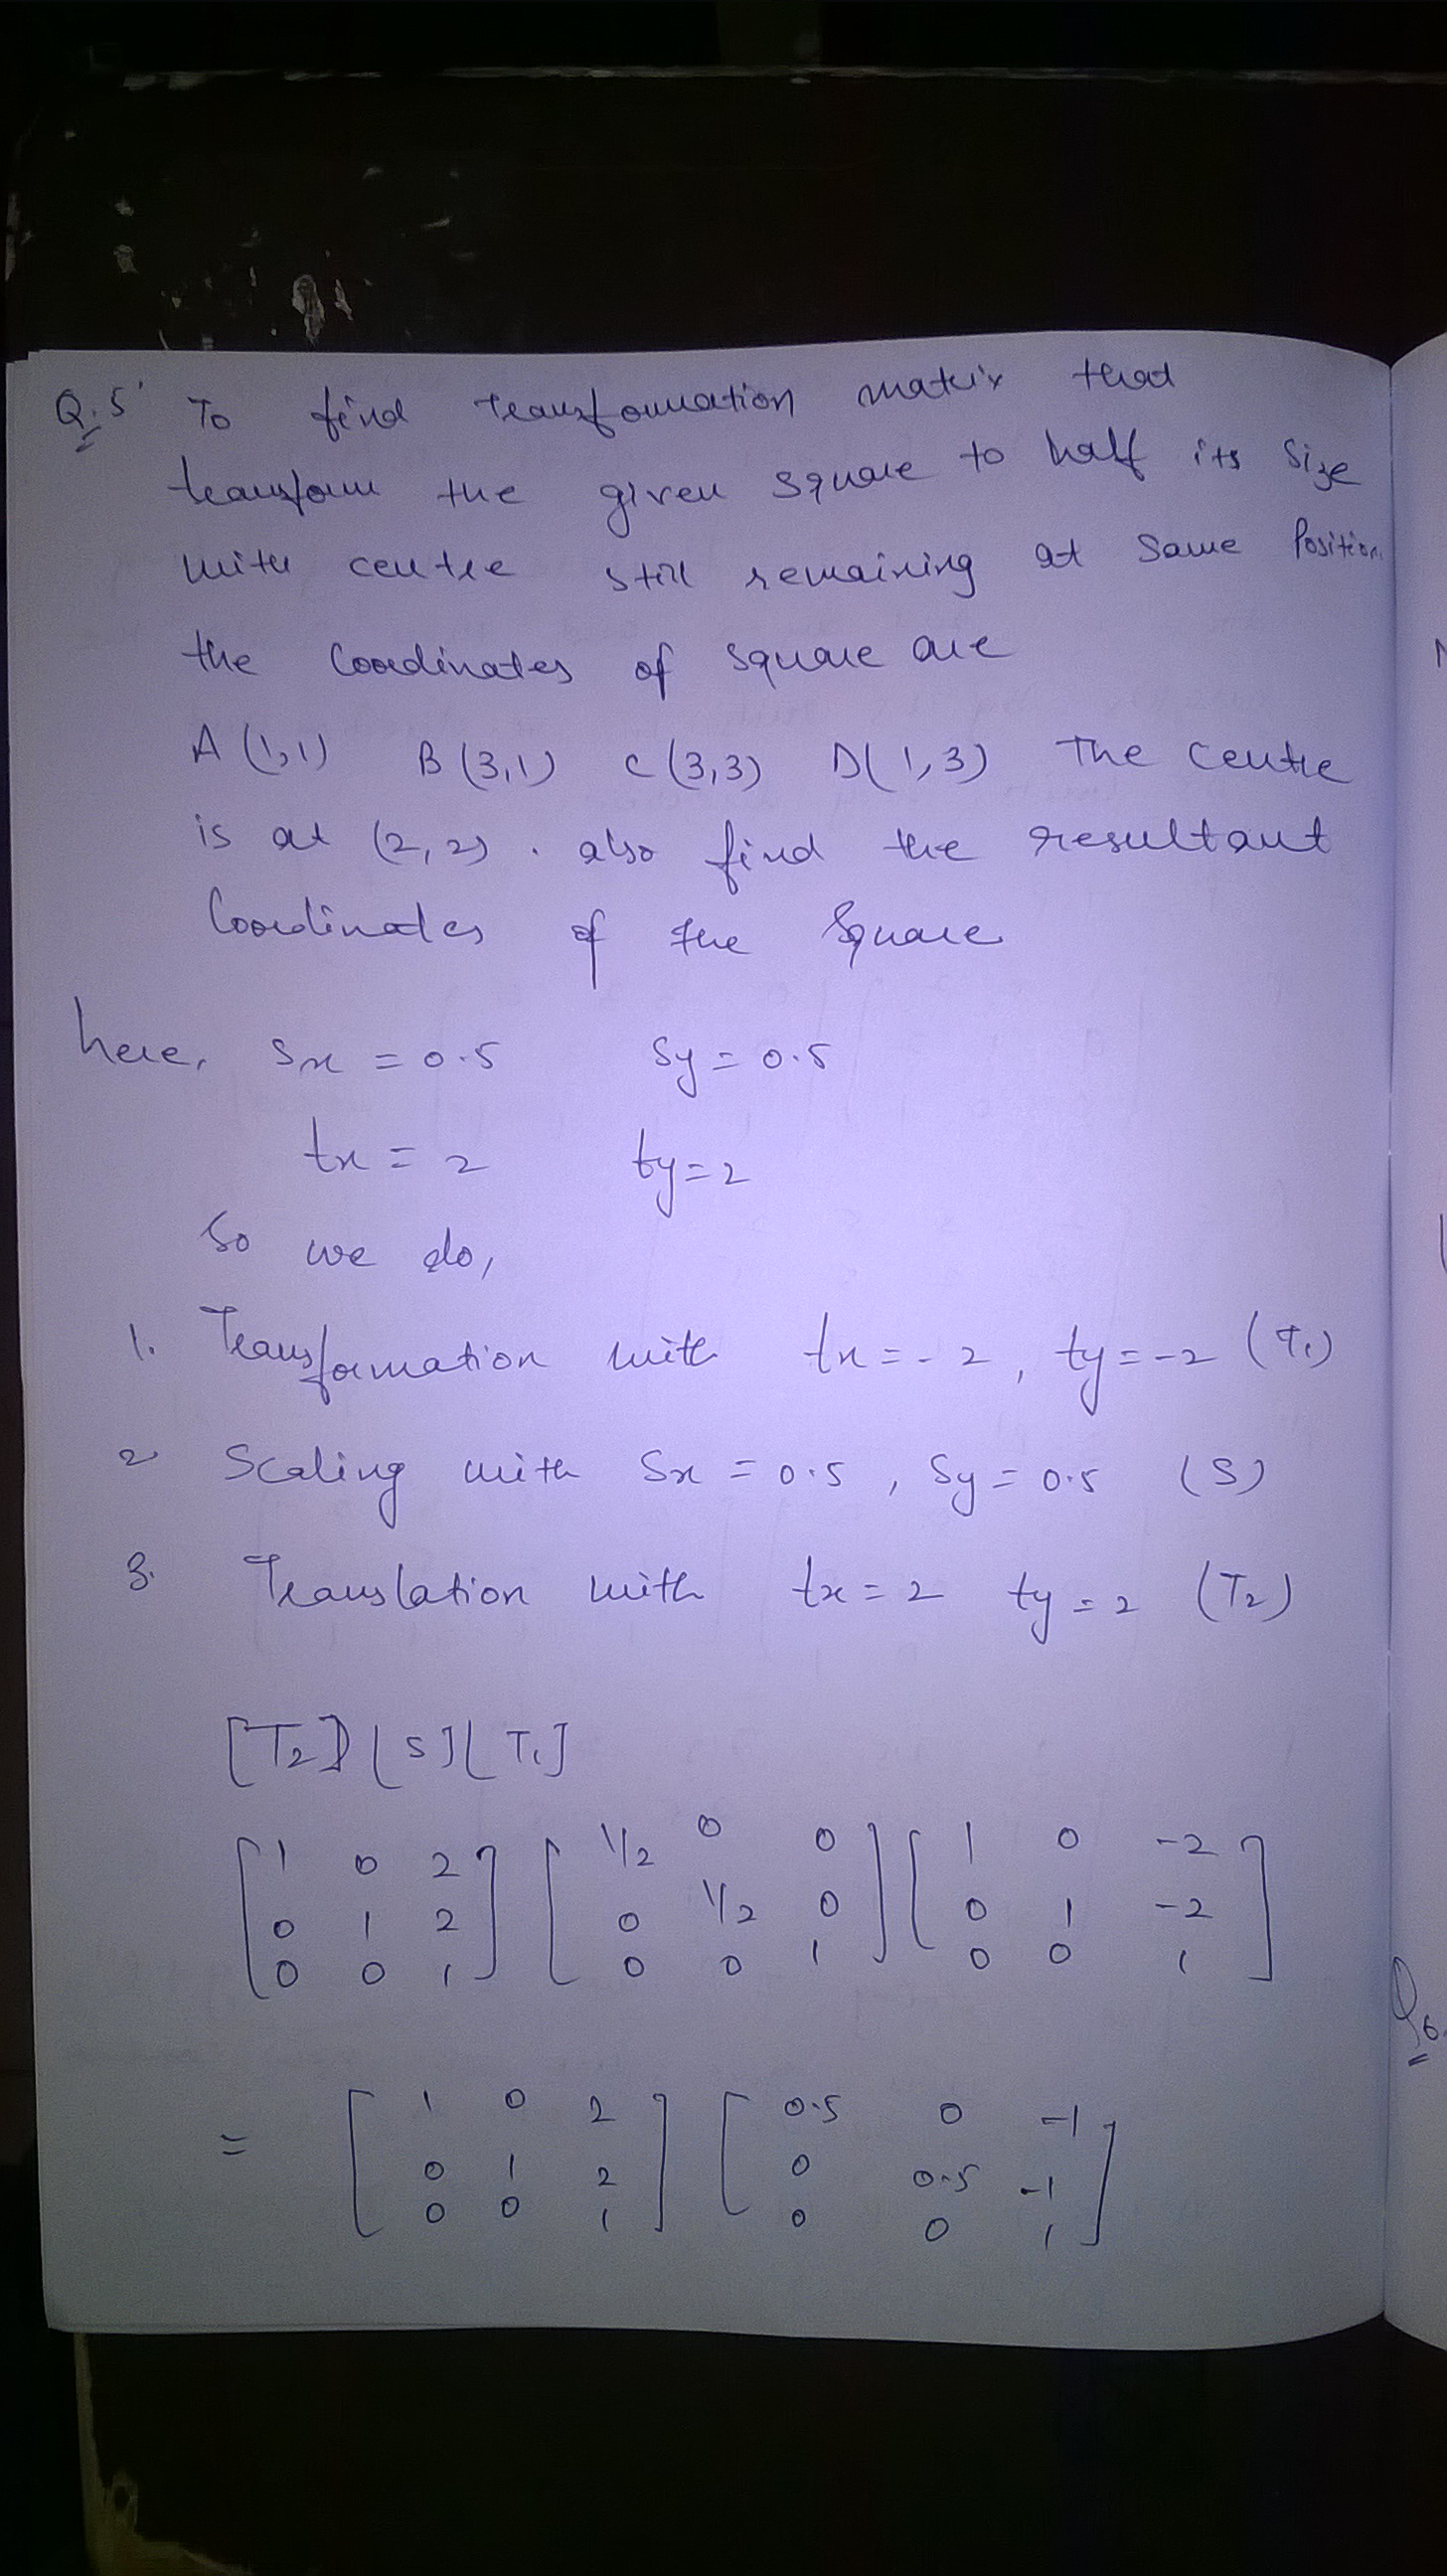 Q.5 To find transformation matrix that
transform the given square to half its size
with centre still remaining at same Position.
the Coordinates of square are
A(1,1) B(3,1) C(3,3) D(1,3) The centre
is at (2,2). also find the resultant
Coordinates of the Square
here, Sx = 0.5 Sy = 0.5
tx = 2 ty = 2
So we do,
1. Transformation with tx = -2, ty = -2 (T1)
2 Scaling with Sx = 0.5, Sy = 0.5 (S)
3. Translation with tx = 2 ty = 2 (T2)
[T2][S][T1]
[1 0 2] [1/2 0 0] [1 0 -2]
[0 1 2] [0 1/2 0] [0 1 -2]
[0 0 1] [0 0 1] [0 0 1]
= [1 0 2] [0.5 0 -1]
[0 1 2] [0 0.5 -1]
[0 0 1] [0 0 1]
Q6.